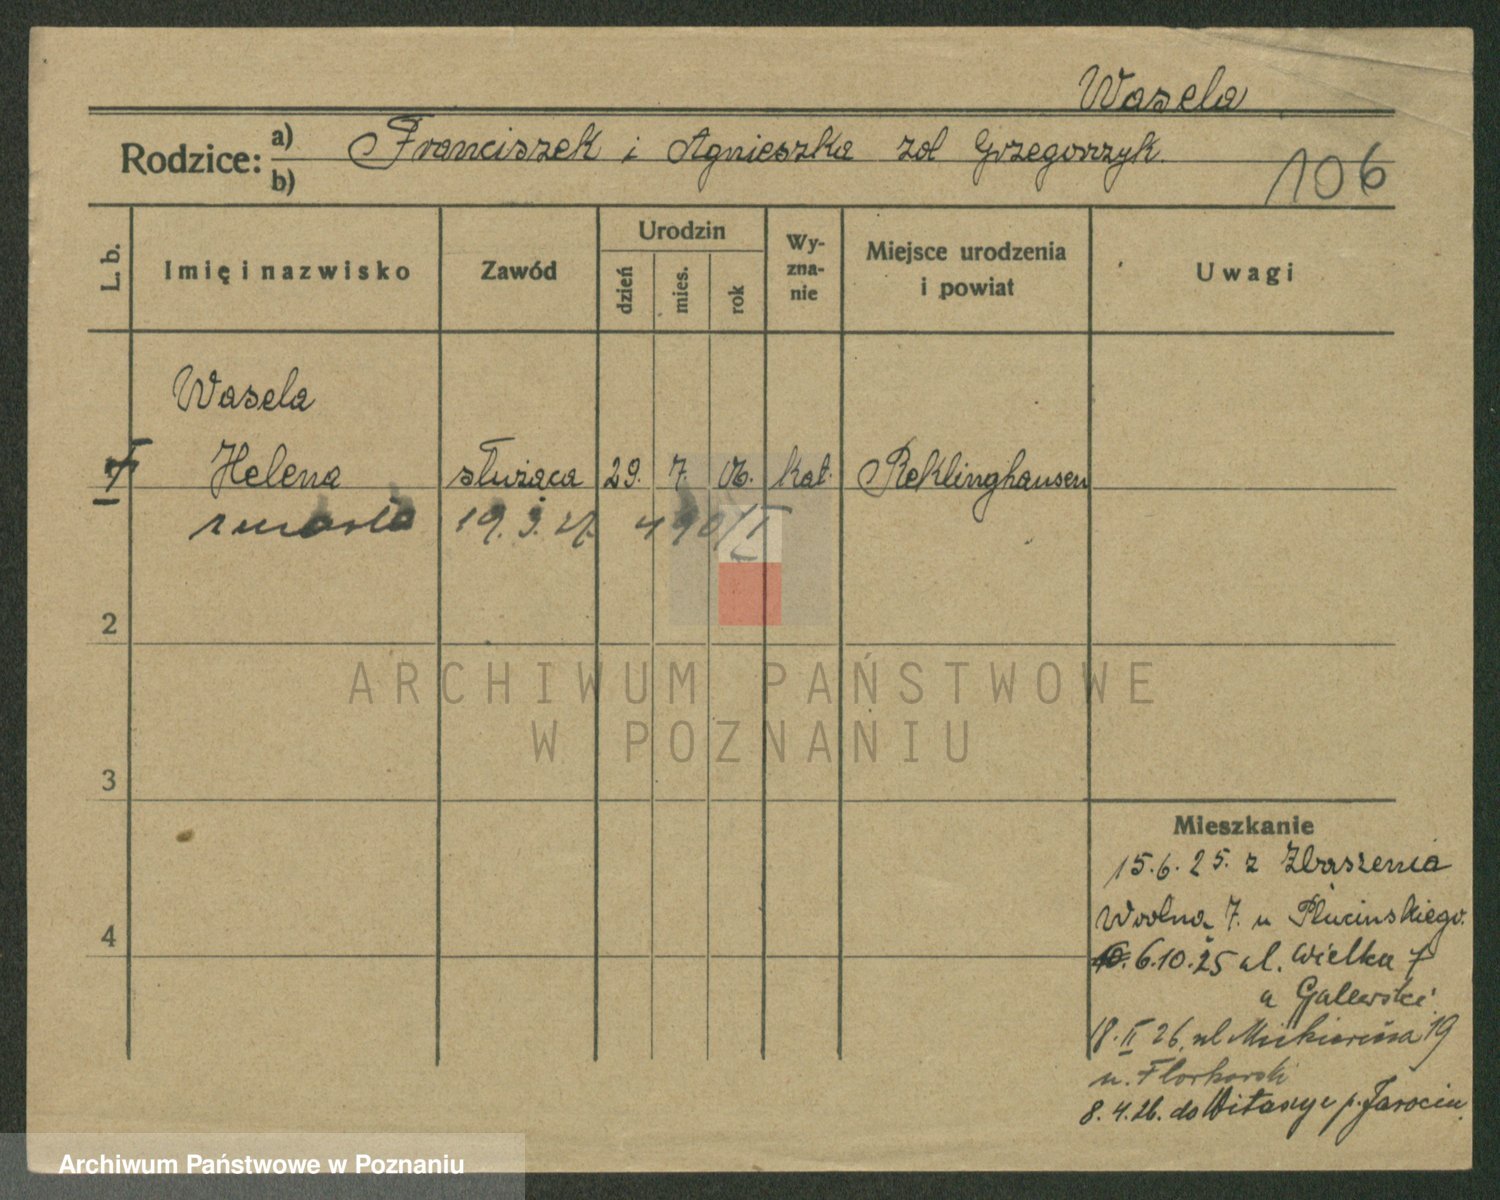 Wasela
Rodzice: a) Franciszek i Agnieszka zol Grzegorzyk.
b)
106
L. b.
Imię i nazwisko
Zawód
Urodzin
dzień
mies.
rok
Wy-
zna-
nie
Miejsce urodzenia
i powiat
Uwagi
Wasela
Helena służąca 29. 7. 06. kat. Reklinghausen
zmarła 19. 3. 27. 490/I
2
3
4
ARCHIWUM PAŃSTWOWE
W POZNANIU
Mieszkanie
15.6.25. z Zbąszenia
Wrolna 7. u Plucinskiego.
6.10.25 ul. Wielka 7
u Galewski
18.II 26. ul Mickiewicza 19
u. Florkowski
8.4.26. do Witaszyc p. Jarocin.
Archiwum Państwowe w Poznaniu